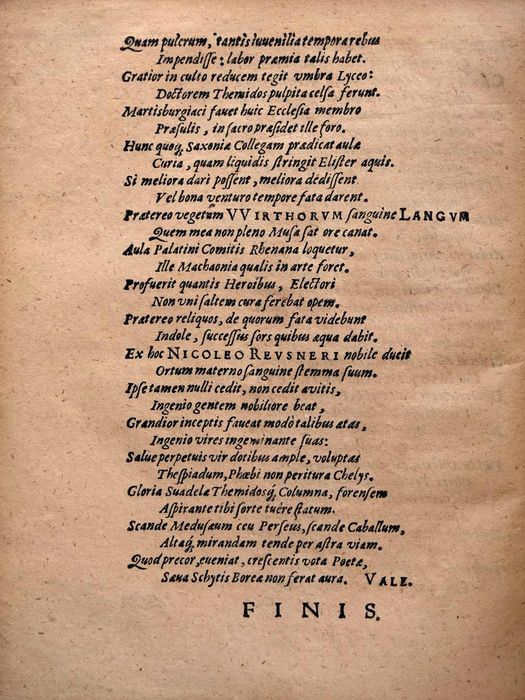 Quam pulcrum, tantis iuvenilia tempora rebus
Impendisse: labor præmia talis habet.
Gratior in culto reducem tegit vmbra Lyceo:
Doctorem Themidos pulpita celsa ferunt.
Martisburgiaci favet huic Ecclesia membro
Præsulis, in sacro præsidet ille foro.
Hunc quoq; Saxoniæ Collegam prædicat aulæ
Curia, quam liquidis stringit Elister aquis.
Si meliora dari possent, meliora dedissent
Vel bona venturo tempore fata darent.
Prætereo vegetum VVIRTHORVM sanguine LANGVM
Quem mea non pleno Musa sat ore canat.
Aula Palatini Comitis Rhenana loquetur,
Ille Machaonia qualis in arte foret.
Profuerit quantis Heroibus, Electori
Non vni saltem cura ferebat opem.
Prætereo reliquos, de quorum fata videbunt
Indole, successus sors quibus æqua dabit.
Ex hoc NICOLEO REVSNERI nobile ducit
Ortum materno sanguine stemma suum.
Ipse tamen nulli cedit, non cedit avitis,
Ingenio gentem nobiliore beat,
Grandior inceptis faveat modò talibus ætas,
Ingenio vires ingeminante suas:
Salue perpetuis vir dotibus ample, voluptas
Thespiadum, Phœbi non peritura Chelys.
Gloria Suadelæ Themidosq́; Columna, forensem
Aspirante tibi sorte tuêre statum.
Scande Medusæum ceu Perseus, scande Caballum,
Altaq́; mirandam tende per astra viam.
Quod precor, eveniat, crescentis vota Poetæ,
Sæva Schytis Boreæ non ferat aura. VALE.
FINIS.